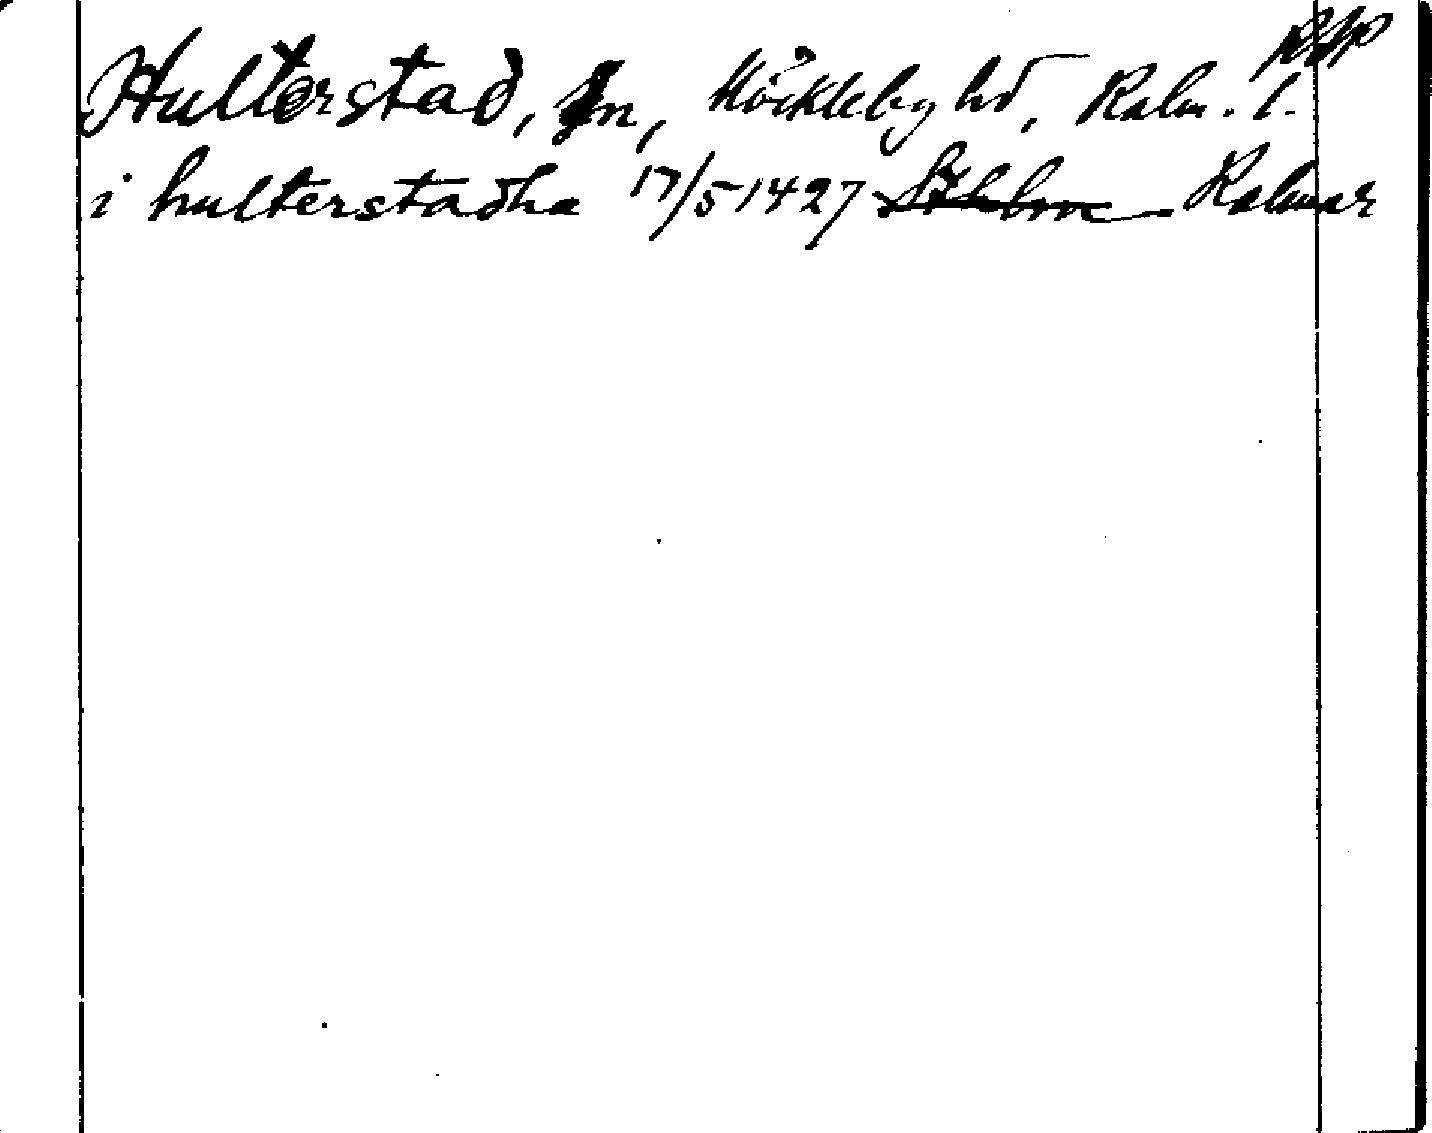 Hulterstad, sn, Möckleby hd, Kalm. l.
i hulterstadha 17/5 1427 Sthlm Kalmar